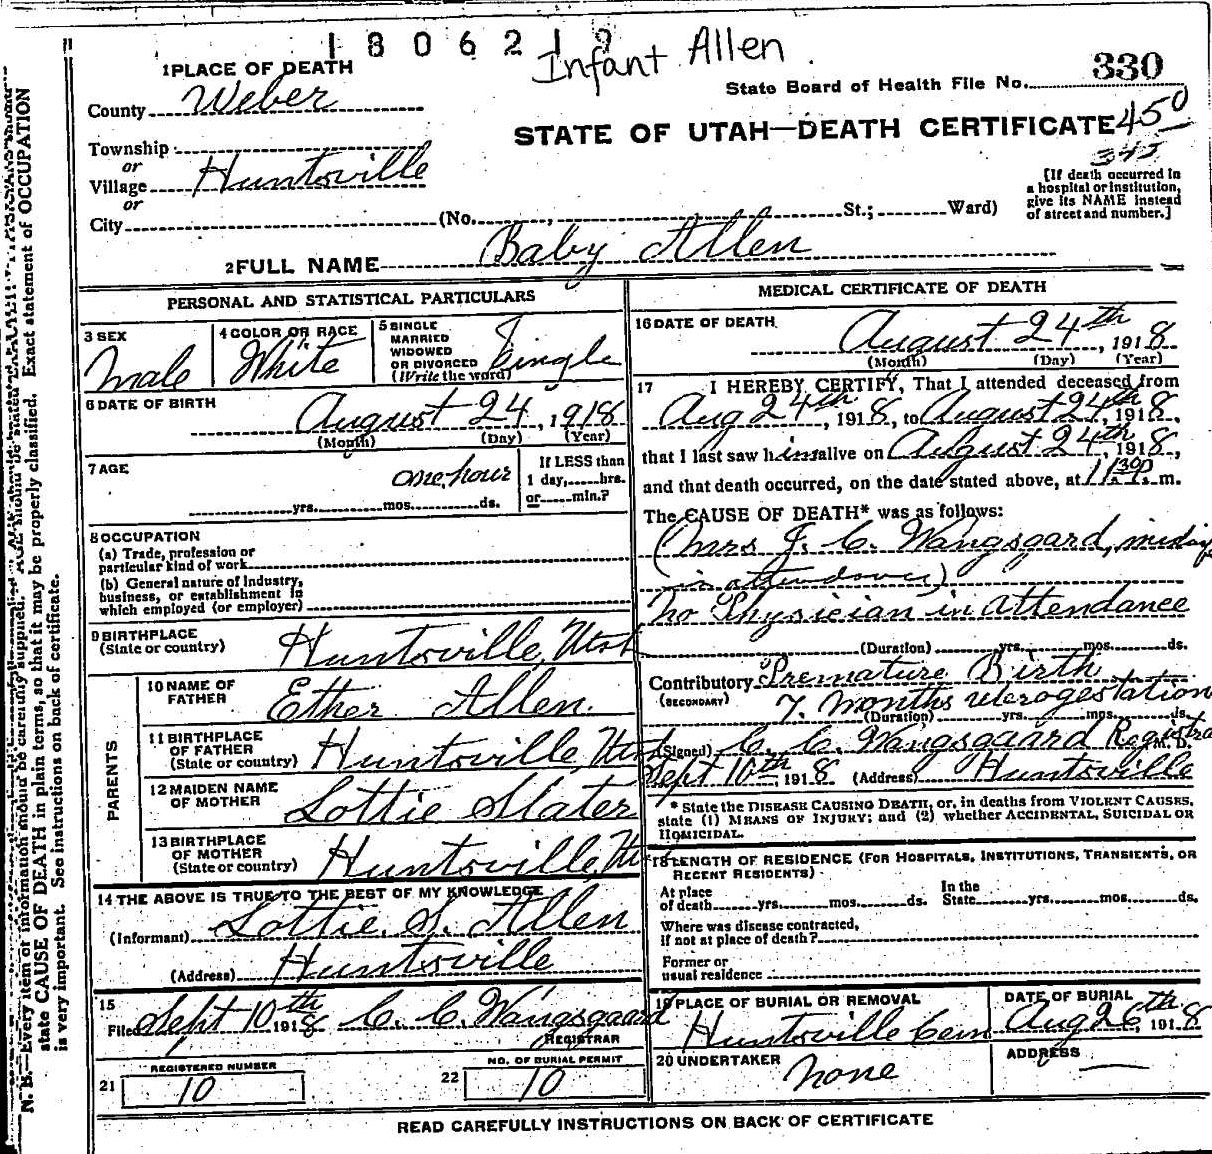 1 8 0 6 2 1 9
Infant Allen
1 PLACE OF DEATH
State Board of Health File No. 330
County Weber
STATE OF UTAH—DEATH CERTIFICATE 450
345
Township
or
Village Huntsville
or
City (No. , St.; Ward)
[If death occurred in
a hospital or institution,
give its NAME instead
of street and number.]
2 FULL NAME Baby Allen
PERSONAL AND STATISTICAL PARTICULARS
3 SEX
Male
4 COLOR OR RACE
White
5 SINGLE
MARRIED
WIDOWED
OR DIVORCED
(Write the word)
Single
6 DATE OF BIRTH
August 24, 1918
(Month) (Day) (Year)
7 AGE
one hour
yrs. mos. ds.
If LESS than
1 day, hrs.
or min.?
8 OCCUPATION
(a) Trade, profession or
particular kind of work
(b) General nature of industry,
business, or establishment in
which employed (or employer)
9 BIRTHPLACE
(State or country)
Huntsville, Utah
PARENTS
10 NAME OF
FATHER
Ether Allen.
11 BIRTHPLACE
OF FATHER
(State or country)
Huntsville, Utah
12 MAIDEN NAME
OF MOTHER
Lottie Slater
13 BIRTHPLACE
OF MOTHER
(State or country)
Huntsville, Ut
14 THE ABOVE IS TRUE TO THE BEST OF MY KNOWLEDGE
(Informant) Lottie S. Allen
(Address) Huntsville
15
Filed Sept 10th 1918 C. C. Wangsgaard
REGISTRAR
21 REGISTERED NUMBER
10
22 NO. OF BURIAL PERMIT
10
MEDICAL CERTIFICATE OF DEATH
16 DATE OF DEATH
August 24th, 1918
(Month) (Day) (Year)
17 I HEREBY CERTIFY, That I attended deceased from
Aug 24th, 1918, to August 24th 1918,
that I last saw him alive on August 24th, 1918,
and that death occurred, on the date stated above, at 11 30 P. m.
The CAUSE OF DEATH* was as follows:
(Mrs J. C. Wangsgard, midwife
in attendance)
No Physician in Attendance
(Duration) yrs. mos. ds.
Contributory Premature Birth
(SECONDARY) 7. Months uterogestation
(Duration) yrs. mos. ds.
(Signed) C. C. Wangsgaard Registrar M. D.
Sept 10th, 1918 (Address) Huntsville
* State the DISEASE CAUSING DEATH, or, in deaths from VIOLENT CAUSES,
state (1) MEANS OF INJURY; and (2) whether ACCIDENTAL, SUICIDAL OR
HOMICIDAL.
18 LENGTH OF RESIDENCE (FOR HOSPITALS, INSTITUTIONS, TRANSIENTS, OR
RECENT RESIDENTS)
At place
of death yrs. mos. ds.
In the
State yrs. mos. ds.
Where was disease contracted,
if not at place of death?
Former or
usual residence
19 PLACE OF BURIAL OR REMOVAL
Huntsville Cem
DATE OF BURIAL
Aug 26th, 1918
20 UNDERTAKER
None
ADDRESS
READ CAREFULLY INSTRUCTIONS ON BACK OF CERTIFICATE
N. B.—Every item of information should be carefully supplied. AGE should be stated EXACTLY.
state CAUSE OF DEATH in plain terms, so that it may be properly classified. Exact statement of OCCUPATION
is very important. See instructions on back of certificate.